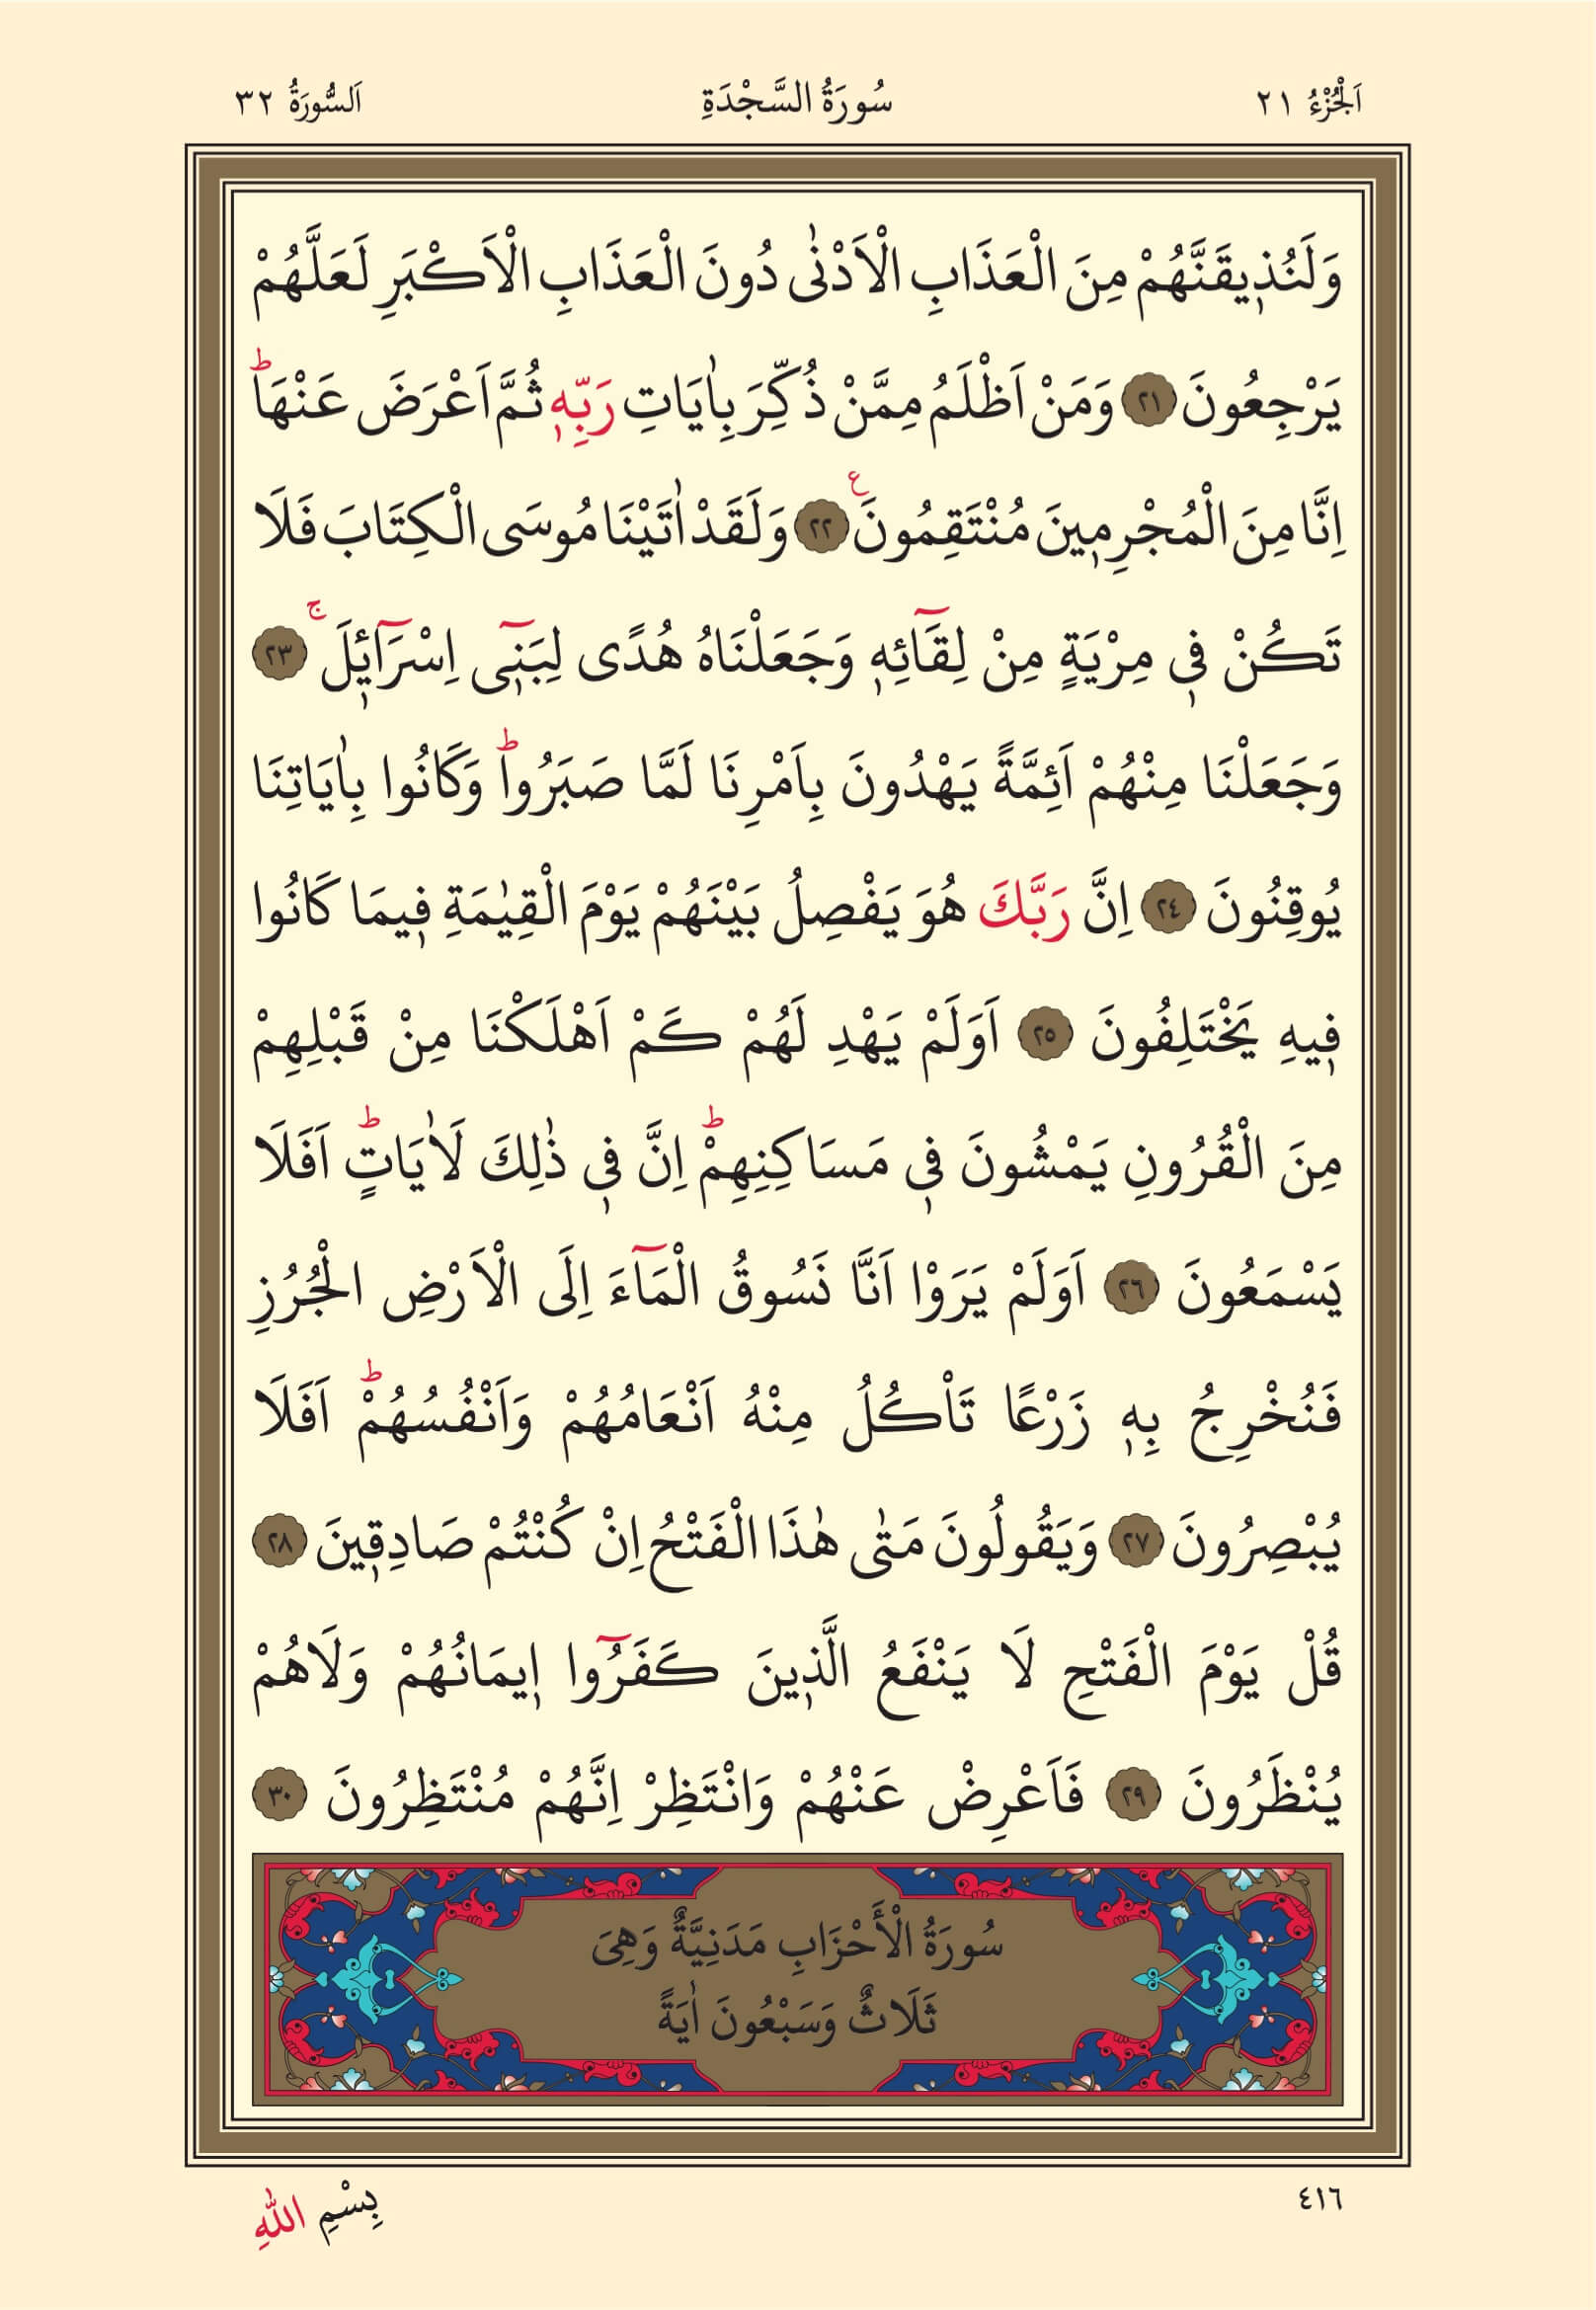 اَلْجُزْءُ ٢١ سُورَةُ السَّجْدَةِ اَلسُّورَةُ ٣٢
وَلَنُذ۪يقَنَّهُمْ مِنَ الْعَذَابِ الْاَدْنٰى دُونَ الْعَذَابِ الْاَكْبَرِ لَعَلَّهُمْ
يَرْجِعُونَ ٢١ وَمَنْ اَظْلَمُ مِمَّنْ ذُكِّرَ بِاٰيَاتِ رَبِّه۪ ثُمَّ اَعْرَضَ عَنْهَاۜ
اِنَّا مِنَ الْمُجْرِم۪ينَ مُنْتَقِمُونَ۟ ٢٢ وَلَقَدْ اٰتَيْنَا مُوسَى الْكِتَابَ فَلَا
تَكُنْ ف۪ي مِرْيَةٍ مِنْ لِقَٓائِه۪ وَجَعَلْنَاهُ هُدًى لِبَن۪ٓي اِسْرَٓائ۪لَۚ ٢٣
وَجَعَلْنَا مِنْهُمْ اَئِمَّةً يَهْدُونَ بِاَمْرِنَا لَمَّا صَبَرُواۜ وَكَانُوا بِاٰيَاتِنَا
يُوقِنُونَ ٢٤ اِنَّ رَبَّكَ هُوَ يَفْصِلُ بَيْنَهُمْ يَوْمَ الْقِيٰمَةِ ف۪يمَا كَانُوا
ف۪يهِ يَخْتَلِفُونَ ٢٥ اَوَلَمْ يَهْدِ لَهُمْ كَمْ اَهْلَكْنَا مِنْ قَبْلِهِمْ
مِنَ الْقُرُونِ يَمْشُونَ ف۪ي مَسَاكِنِهِمْۜ اِنَّ ف۪ي ذٰلِكَ لَاٰيَاتٍۜ اَفَلَا
يَسْمَعُونَ ٢٦ اَوَلَمْ يَرَوْا اَنَّا نَسُوقُ الْمَٓاءَ اِلَى الْاَرْضِ الْجُرُزِ
فَنُخْرِجُ بِه۪ زَرْعًا تَاْكُلُ مِنْهُ اَنْعَامُهُمْ وَاَنْفُسُهُمْۜ اَفَلَا
يُبْصِرُونَ ٢٧ وَيَقُولُونَ مَتٰى هٰذَا الْفَتْحُ اِنْ كُنْتُمْ صَادِق۪ينَ ٢٨
قُلْ يَوْمَ الْفَتْحِ لَا يَنْفَعُ الَّذ۪ينَ كَفَرُٓوا ا۪يمَانُهُمْ وَلَاهُمْ
يُنْظَرُونَ ٢٩ فَاَعْرِضْ عَنْهُمْ وَانْتَظِرْ اِنَّهُمْ مُنْتَظِرُونَ ٣٠
سُورَةُ الْأَحْزَابِ مَدَنِيَّةٌ وَهِيَ
ثَلَاثٌ وَسَبْعُونَ اٰيَةً
٤١٦ بِسْمِ اللّٰهِ